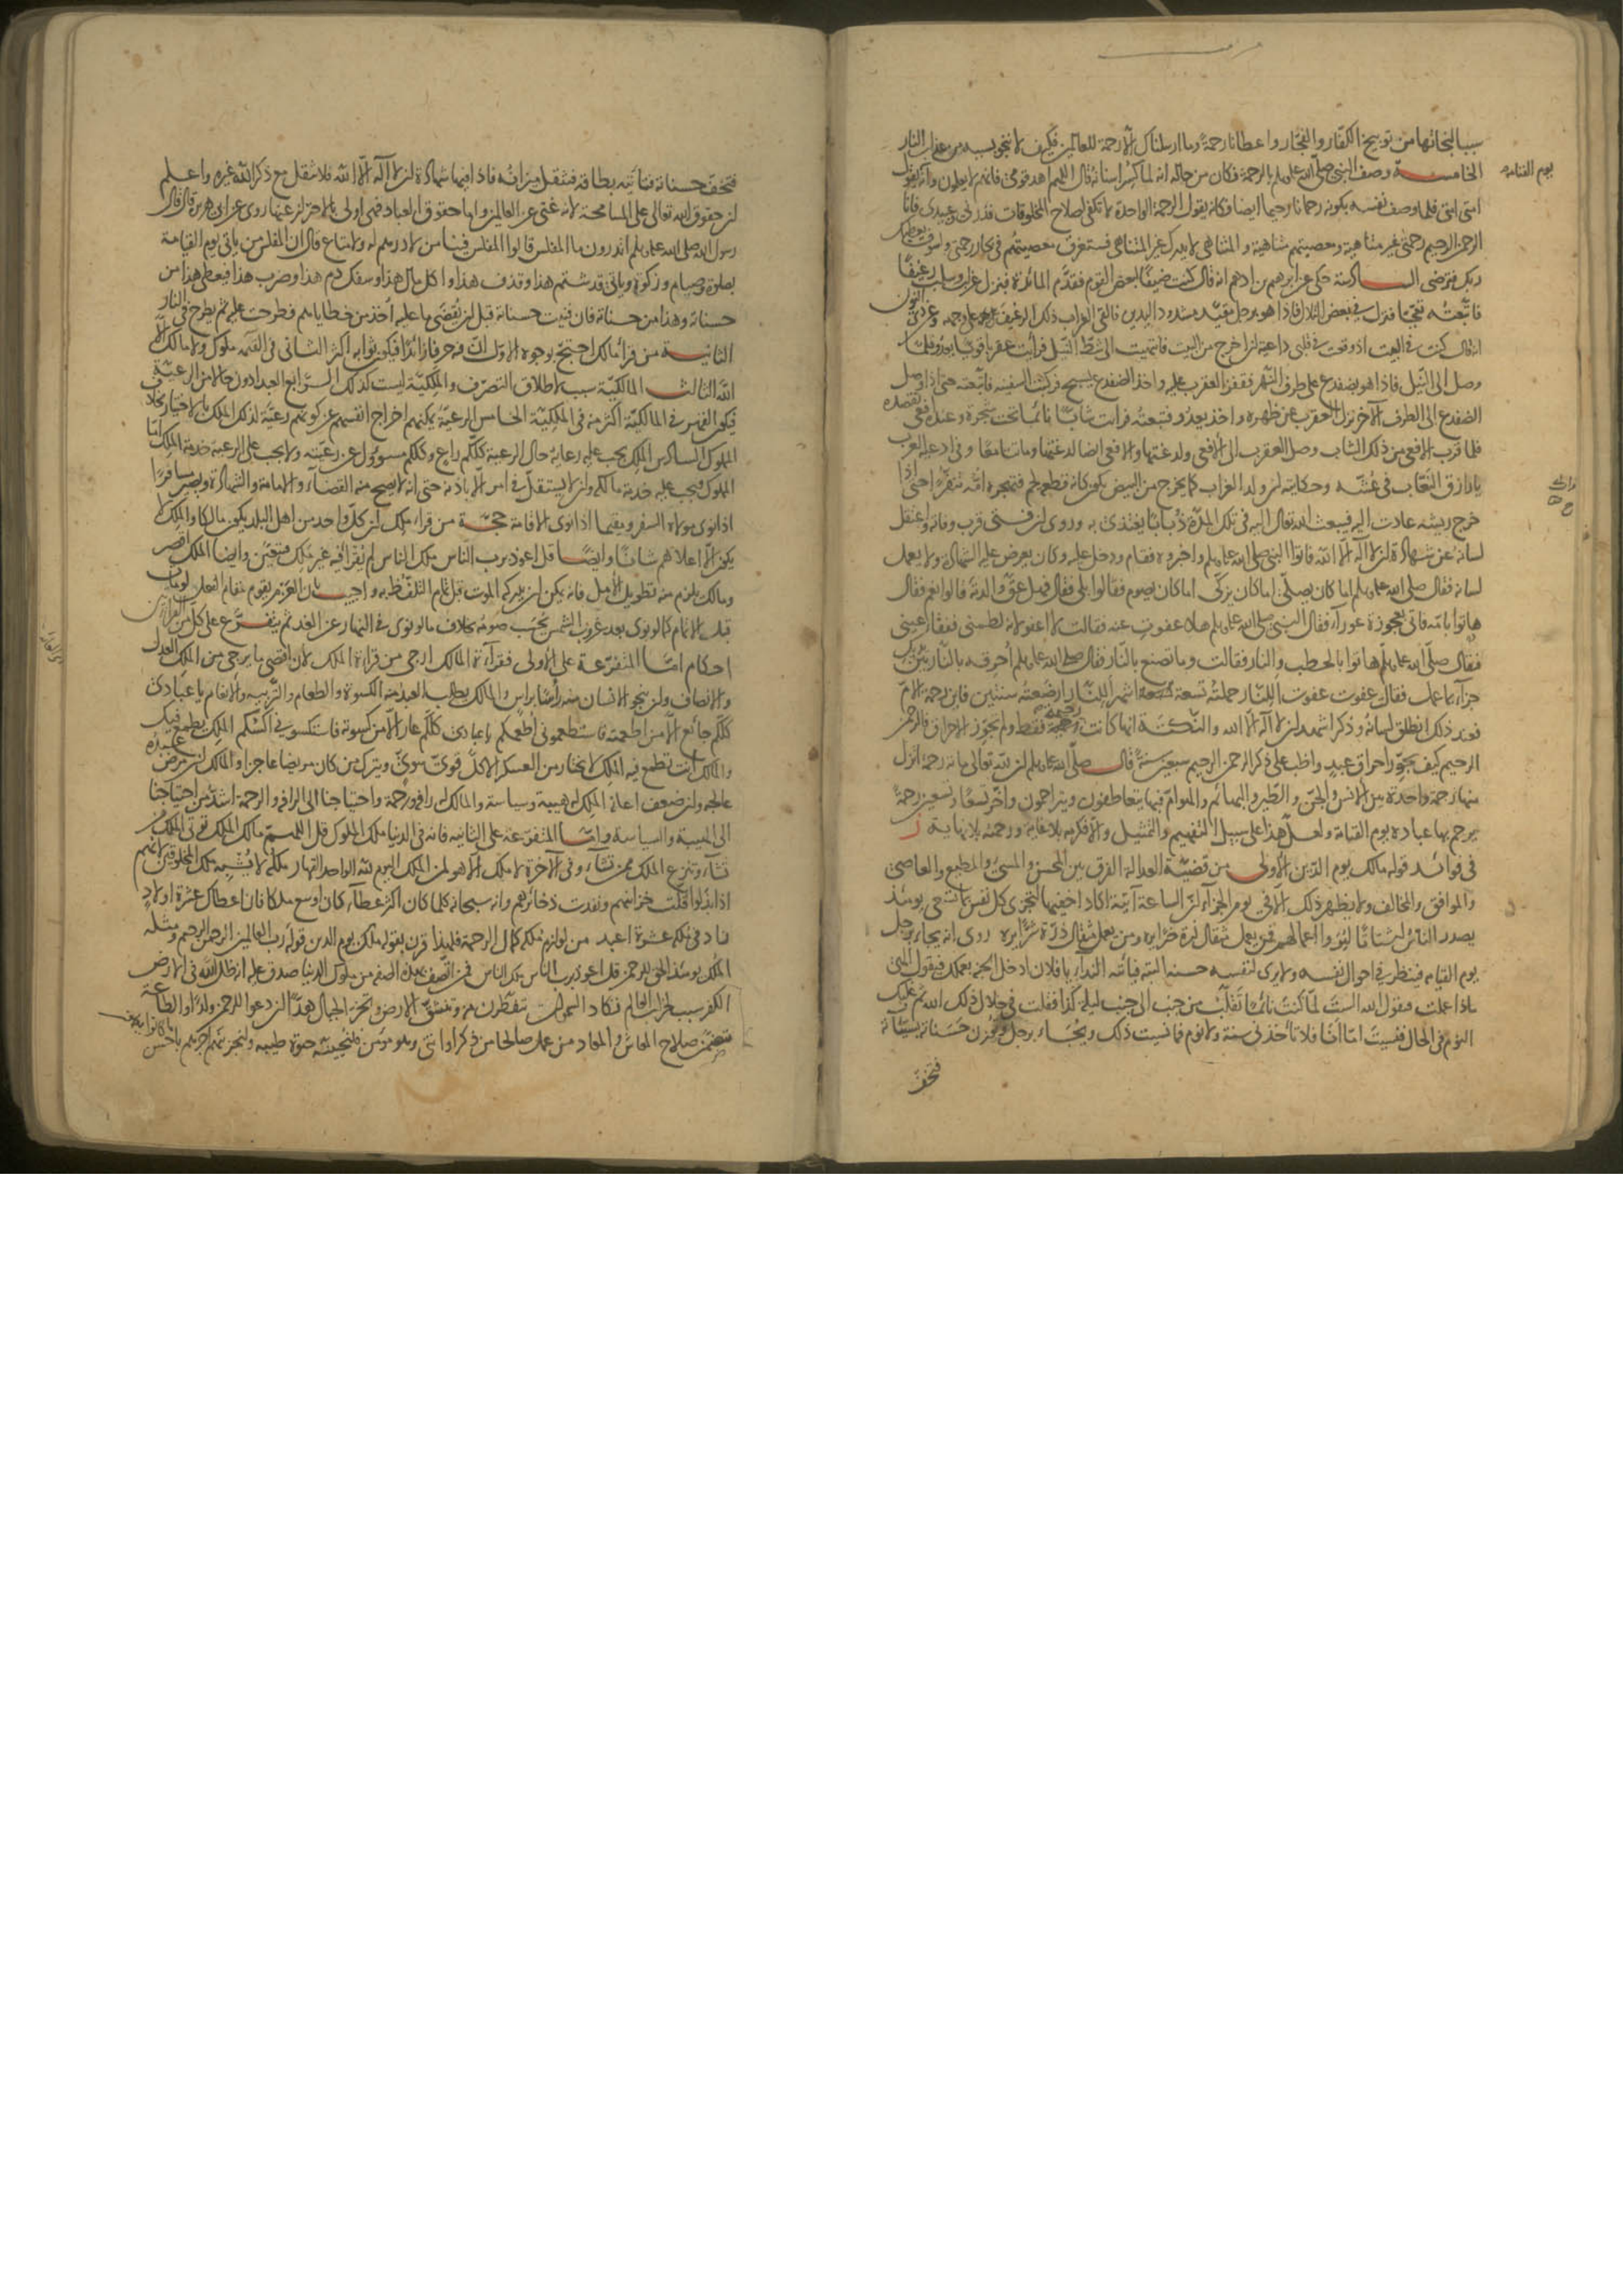 سببا لنجاتها من توبيخ الكفار والفجار واعطانا رحمة وما ارسلناك الا رحمة للعالمين فكيف لا ننجو بسببه من عذاب النار
الخامسة وصف النبي صلى الله عليه وسلم بالرحمة فكان من حاله انه لما كسر اسنانه قال اللهم اهد قومي فانهم لا يعلمون وانه يقول
يوم القيامة
امتي امتي فلما وصف نفسه بكونه رحمانا رحيما ايضا فكانه يقول الرحمة الواحدة لا تكفي لصلاح المخلوقات فذرني وعبيدي فانا
الرحمن الرحيم رحمتي غير متناهية ومعصيتهم متناهية والمتناهي لا يدرك غير المتناهي فستغرق معصيتهم في بحار رحمتي ولسوف يعطيك
ربك فترضى السادسة حكي عن ابرهيم بن ادهم انه قال كنت ضيفا لبعض القوم فقدم المائدة فنزل غراب وسلب رغيفا
فاتبعته تعجبا فنزل في بعض التلال فاذا هو برجل مقيد مشدود اليدين فالقى الغراب ذلك الرغيف على وجهه وعن ذي النون
انه قال كنت في البيت اذ وقعت في قلبي داعية ان اخرج من البيت فانتهيت الى شط النيل فرأيت عقربا قويا يعدو فلما
وصل الى النيل فاذا هو بضفدع على طرف النهر فقفز العقرب عليه واخذ الضفدع يسبح فركبت السفينه فاتبعته حتى اذا وصل
الضفدع الى الطرف الآخر نزل العقرب عن ظهره واخذ يعدو فتبعته فرأيت شابا نائما تحت شجرة وعنده افعى تقصده
فلما قرب الافعى من ذلك الشاب وصل العقرب الى الافعى ولدغتها والافعى ايضا لدغتها وماتا معا وفي ادعية العرب
يا رازق النعاب في عشه وحكايته ان ولد الغراب كما يخرج من البيض يكون كانه قطعة لحم فتهجره امه تنفرا حتى اذا
خرج ريشه عادت اليه فيبعث الله تعالى اليه في تلك المدة ذبابا يغتذي به وروي ان فتى قرب وفاته واعتقل
لسانه عن شهادة ان لا آله الا الله فاتوا النبي صلى الله عليه وسلم واخبروه فقام ودخل عليه وكان يعرض عليه الشهادة ولا يعمل
لسانه فقال صلى الله عليه وسلم اما كان يصلي اما كان يزكي اما كان يصوم فقالوا بلى فقال فهل عق والدته قالوا نعم فقال
هاتوا بامه فاتي بعجوزة عوراء فقال النبي صلى الله عليه وسلم هلا عفوت عنه فقالت لا اعفو لانه لطمني ففقأ عيني
فقال صلى الله عليه وسلم هاتوا بالحطب والنار فقالت وما تصنع بالنار فقال صلى الله عليه وسلم احرقه بالنار بين يديك
جزاء بما عمل فقالت عفوت عفوت اللنار حملته تسعة اشهر اللنار ارضعته سنتين فاين رحمة الام
فعند ذلك انطلق لسانه وذكر اشهد ان لا آله الا الله والنكتة انها كانت رحيمة فقط ولم يجوز الاحراق فالرحمن
الرحيم كيف يجوز احراق عبد واظب على ذكر الرحمن الرحيم سبعين سنة قال صلى الله عليه وسلم ان لله تعالى مائة رحمة انزل
منها رحمة واحدة بين الانس والجن والطير والبهائم والهوام فبها يتعاطفون ويتراحمون واخر تسعا وتسعين رحمة
يرحم بها عباده يوم القيامة ولعل هذا على سبيل التفهيم والتمثيل والا فكرمه بلا غاية ورحمته بلا نهاية
في فوائد قوله مالك يوم الدين الاولى من قضية العدالة الفرق بين المحسن والمسيء والمطيع والعاصي
والموافق والمخالف ولا يظهر ذلك الا في يوم الجزاء ان الساعة آتية اكاد اخفيها لتجزى كل نفس بما تسعى يومئذ
يصدر الناس اشتاتا ليروا اعمالهم فمن يعمل مثقال ذرة خيرا يره ومن يعمل مثقال ذرة شرا يره روي انه يجاء برجل
يوم القيامة فينظر في احوال نفسه ولا يرى لنفسه حسنة البته فيأتيه النداء يا فلان ادخل الجنة بعملك فيقول الهي
ماذا عملت فيقول الله الست لما كنت نائما تقلبت من جنب الى جنب ليلة كذا فقلت في خلال ذلك الله ثم غلبك
النوم في الحال فنسيت اما انا فلا تأخذني سنة ولا نوم فما نسيت ذلك ويجاء برجل ويوزن حسناته بسيئاته
فتخف
فتخف حسناته فتأتيه بطاقة فتثقل ميزانه فاذا فيها شهادة ان لا آله الا الله فلا يثقل مع ذكر الله غيره واعلم
ان حقوق الله تعالى على المسامحة لانه غني عن العالمين واما حقوق العباد فهي اولى بالاحتراز عنها روي عن ابي هريرة قال قال
رسول الله صلى الله عليه وسلم اتدرون ما المفلس قالوا المفلس فينا من لا درهم له ولا متاع قال ان المفلس من يأتي يوم القيامة
بصلوة وصيام وزكوة ويأتي قد شتم هذا وقذف هذا واكل مال هذا وسفك دم هذا وضرب هذا فيعطى هذا من
حسناته وهذا من حسناته فان فنيت حسناته قبل ان يقضى ما عليه اخذ من خطاياهم فطرحت عليه ثم يطرح في النار
الثانية من قرأ مالك احتج بوجوه الاول ان فيه حرفا زائدا فيكون ثوابه اكثر الثاني في القيمه ملوك ولا مالك الا
الله الثالث المالكية سبب لاطلاق التصرف والملكية ليست كذلك الرابع العبد ادون حالا من الرعية
فيكون القهر في المالكية اكثر منه في الملكية الخامس الرعية يمكنهم اخراج انفسهم عن كونهم رعية لذلك الملك بالاختيار بخلاف
المملوك السادس الملك يجب عليه رعاية حال الرعية كلكم راع وكلكم مسؤول عن رعيته ولا يجب على الرعية خدمة الملك اما
المملوك فيجب عليه خدمة مالكه وان لا يستقل في امر الا باذنه حتى انه لا يصح منه القضاء والامامة والشهادة ويصير مسافرا
اذا نوى مولاه السفر ومقيما اذا نوى الاقامة حجة من قرأ ملك ان كل واحد من اهل البلد يكون مالكا والملك لا
يكون الا اعلاهم شانا وايضا قل اعوذ برب الناس ملك الناس لم يقرأ فيه غير ملك فتعين وايضا الملك اقصر
ومالك يلزم منه تطويل الامل فانه يمكن ان يدركه الموت قبل تمام التلفظ به واجيب بان العزم يقوم مقام الفعل لو مات
قبل الاتمام كما لو نوى بعد غروب الشمس يحسب صومه بخلاف ما لو نوى في النهار عن الغد ثم يتفرع على كل من القراءتين
احكام اما المتفرعة على الاولى فقراءة المالك ارجى من قراءة الملك لان اقصى ما يرجى من الملك العدل
والانصاف وان ينجو الانسان منه رأسا براس والمالك يطلب العبد منه الكسوة والطعام والتربيه والانعام يا عبادي
كلكم جائع الا من اطعمته فاستطعموني اطعمكم يا عبادي كلكم عار الا من كسوته فاستكسوني اكسكم الملك يطمع فيك
والمالك انت تطمع فيه الملك لا يختار من العسكر الا كل قوي سوي ويترك من كان مريضا عاجزا والمالك ان مرض عبده
عالجه وان ضعف اعانه الملك له هيبة وسياسة والمالك له رافة ورحمة واحتياجنا الى الرافة والرحمة اشد من احتياجنا
الى الهيبة والسياسة واما المتفرعة على الثانيه فانه في الدنيا ملك الملوك قل اللهم مالك الملك تؤتي الملك من
تشاء وتنزع الملك ممن تشاء وفي الآخرة لا ملك الا هو لمن الملك اليوم لله الواحد القهار وملكه لا يشبه ملك المخلوقين لانهم
اذا بذلوا قلت خزائنهم ونفدت ذخائرهم وانه سبحانه كلما كان اكثر عطاء كان اوسع ملكا فان اعطاك عشرة اولاد
زاد في ملكه عشرة اعبد من لوازم ملكه كمال الرحمة فلهذا قرن بقوله ملك يوم الدين قوله رب العالمين الرحمن الرحيم ومثله
الملك يومئذ الحق للرحمن قل اعوذ برب الناس ملك الناس فمن اتصف بهذه الصفه من ملوك الدنيا صدق عليه انه ظل الله في الارض
الكفر سبب لخراب العالم تكاد السموات يتفطرن منه وتنشق الارض وتخر الجبال هدا ان دعوا للرحمن ولدا والطاعة
تتضمن صلاح المعاش والمعاد من عمل صالحا من ذكر او انثى وهو مؤمن فلنحيينه حيوة طيبه ولنجزينهم اجرهم باحسن
ما كانوا يعملون